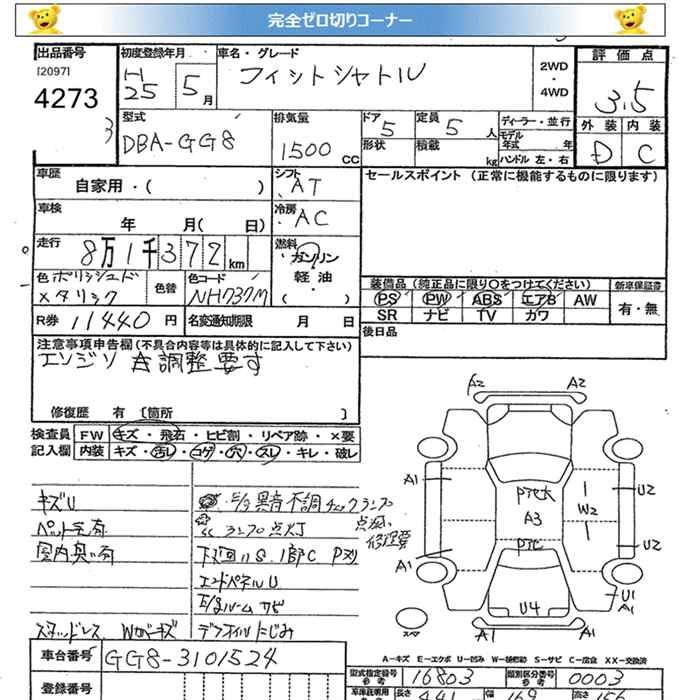 完全ゼロ切りコーナー
出品番号
[2097]
4273
3
初度登録年月
H25 5月
車名・グレード
フィットシャトル
2WD
・
4WD
評価点
3.5
外装 内装
D C
型式
DBA-GG8
排気量
1500 CC
ドア 5
形状
定員 5 人
積載 kg
ディーラー・並行
モデル年式 年
ハンドル 左・右
車歴
自家用・( )
シフト
AT
セールスポイント(正常に機能するものに限ります)
車検
年 月( 日)
冷房
AC
走行
8万1千372km
燃料
・ガソリン
軽油
・( )
色 ポリッシュド
メタリック
色替
色コード
NH737M
装備品(純正品に限り○をつけてください)
PS PW ABS エアB AW
SR ナビ TV カワ
新車保証書
有・無
R券 11440円
名変通知期限 月 日
後日品
注意事項申告欄(不具合内容等は具体的に記入して下さい)
エンジン 調整要す
修復歴 有 [箇所 ]
検査員 FW キズ・飛石・ヒビ割・リペア跡・×要
記入欄 内装 キズ・汚レ・コゲ・穴・スレ・キレ・破レ
キズU
ペット毛有
室内臭い有
スタッドレス
E/g異音不調チェックランプ
点灯、
修理要
ランプ点灯
下廻りS.
エンドペネルU
E/gルームサビ
デフオイルにじみ
A2 A2
A1
U2
Pアセ大
W2
A3
Pアセ
U2
A1
U1
A1
U4
A1 A1
スペア
A-キズ E-エクボ U-凹み W-補修跡 S-サビ C-腐食 XX-交換済
車台番号 GG8-3101524
型式指定番号 参考 16803
類別区分番号 参考 0003
登録番号
車庫証明用 長さ 441 幅 169 高さ